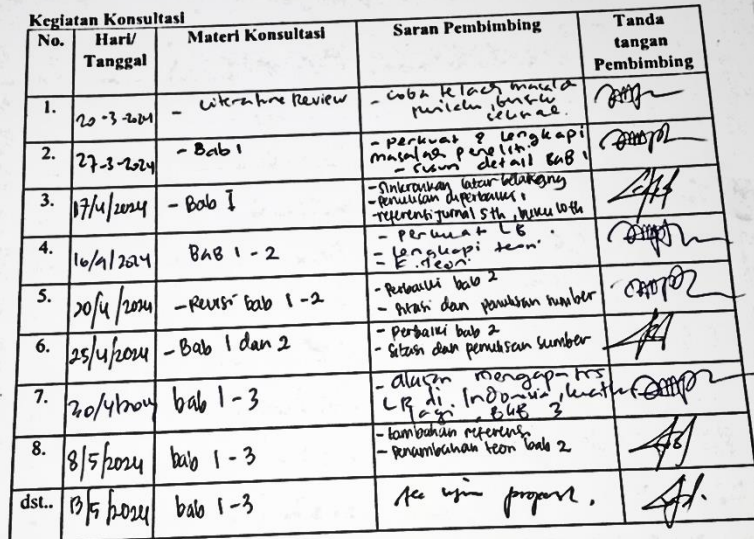 Kegiatan Konsultasi
No. Hari/ Tanggal Materi Konsultasi Saran Pembimbing Tanda tangan Pembimbing
1. 20-3-2024 - Literature Review - coba telaah masalah
seksual
2. 27-3-2024 - Bab 1 - perkuat & lengkapi
masalah penelitian
- susun detail BAB 1
3. 17/4/2024 - Bab I - Sinkronkan latar belakang
- Penulisan diperbaiki
- referensi jurnal 5th, buku 10th
4. 16/4/2024 BAB 1-2 - perkuat LB
- lengkapi teori
- K. Teori
5. 20/4/2024 - Revisi bab 1-2 - Perbaiki bab 2
- Sitasi dan penulisan sumber
6. 25/4/2024 - Bab 1 dan 2 - Perbaiki bab 2
- Sitasi dan penulisan sumber
7. 30/4/2024 bab 1-3 - alasan mengapa
LB di Indonesia
lagi BAB 3
8. 8/5/2024 bab 1-3 - tambahan referensi
- Penambahan teori bab 2
dst.. 13/5/2024 bab 1-3 ujian proposal.